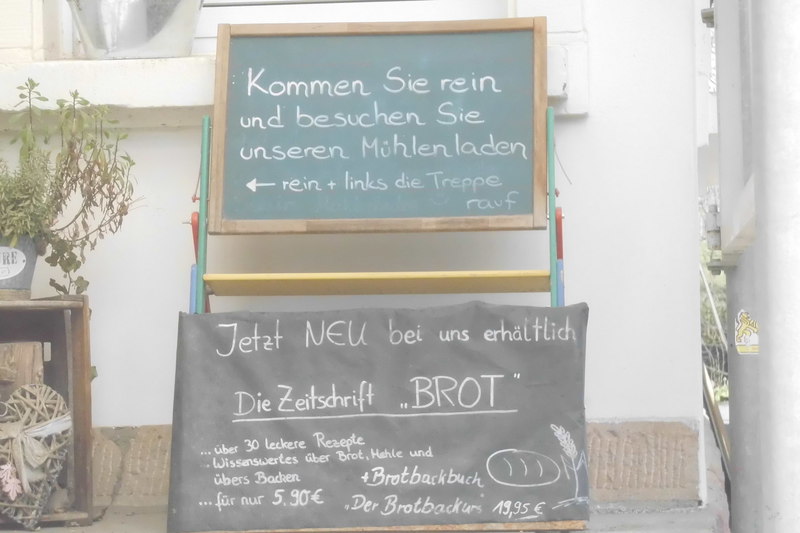 Kommen Sie rein
und besuchen Sie
unseren Mühlenladen
← rein + links die Treppe
rauf
Jetzt NEU bei uns erhältlich
Die Zeitschrift „BROT"
... über 30 leckere Rezepte
. Wissenswertes über Brot, Mehle und
übers Backen
+Brotbackbuch
... für nur 5,90€
„Der Brotbackurs 19,95 €